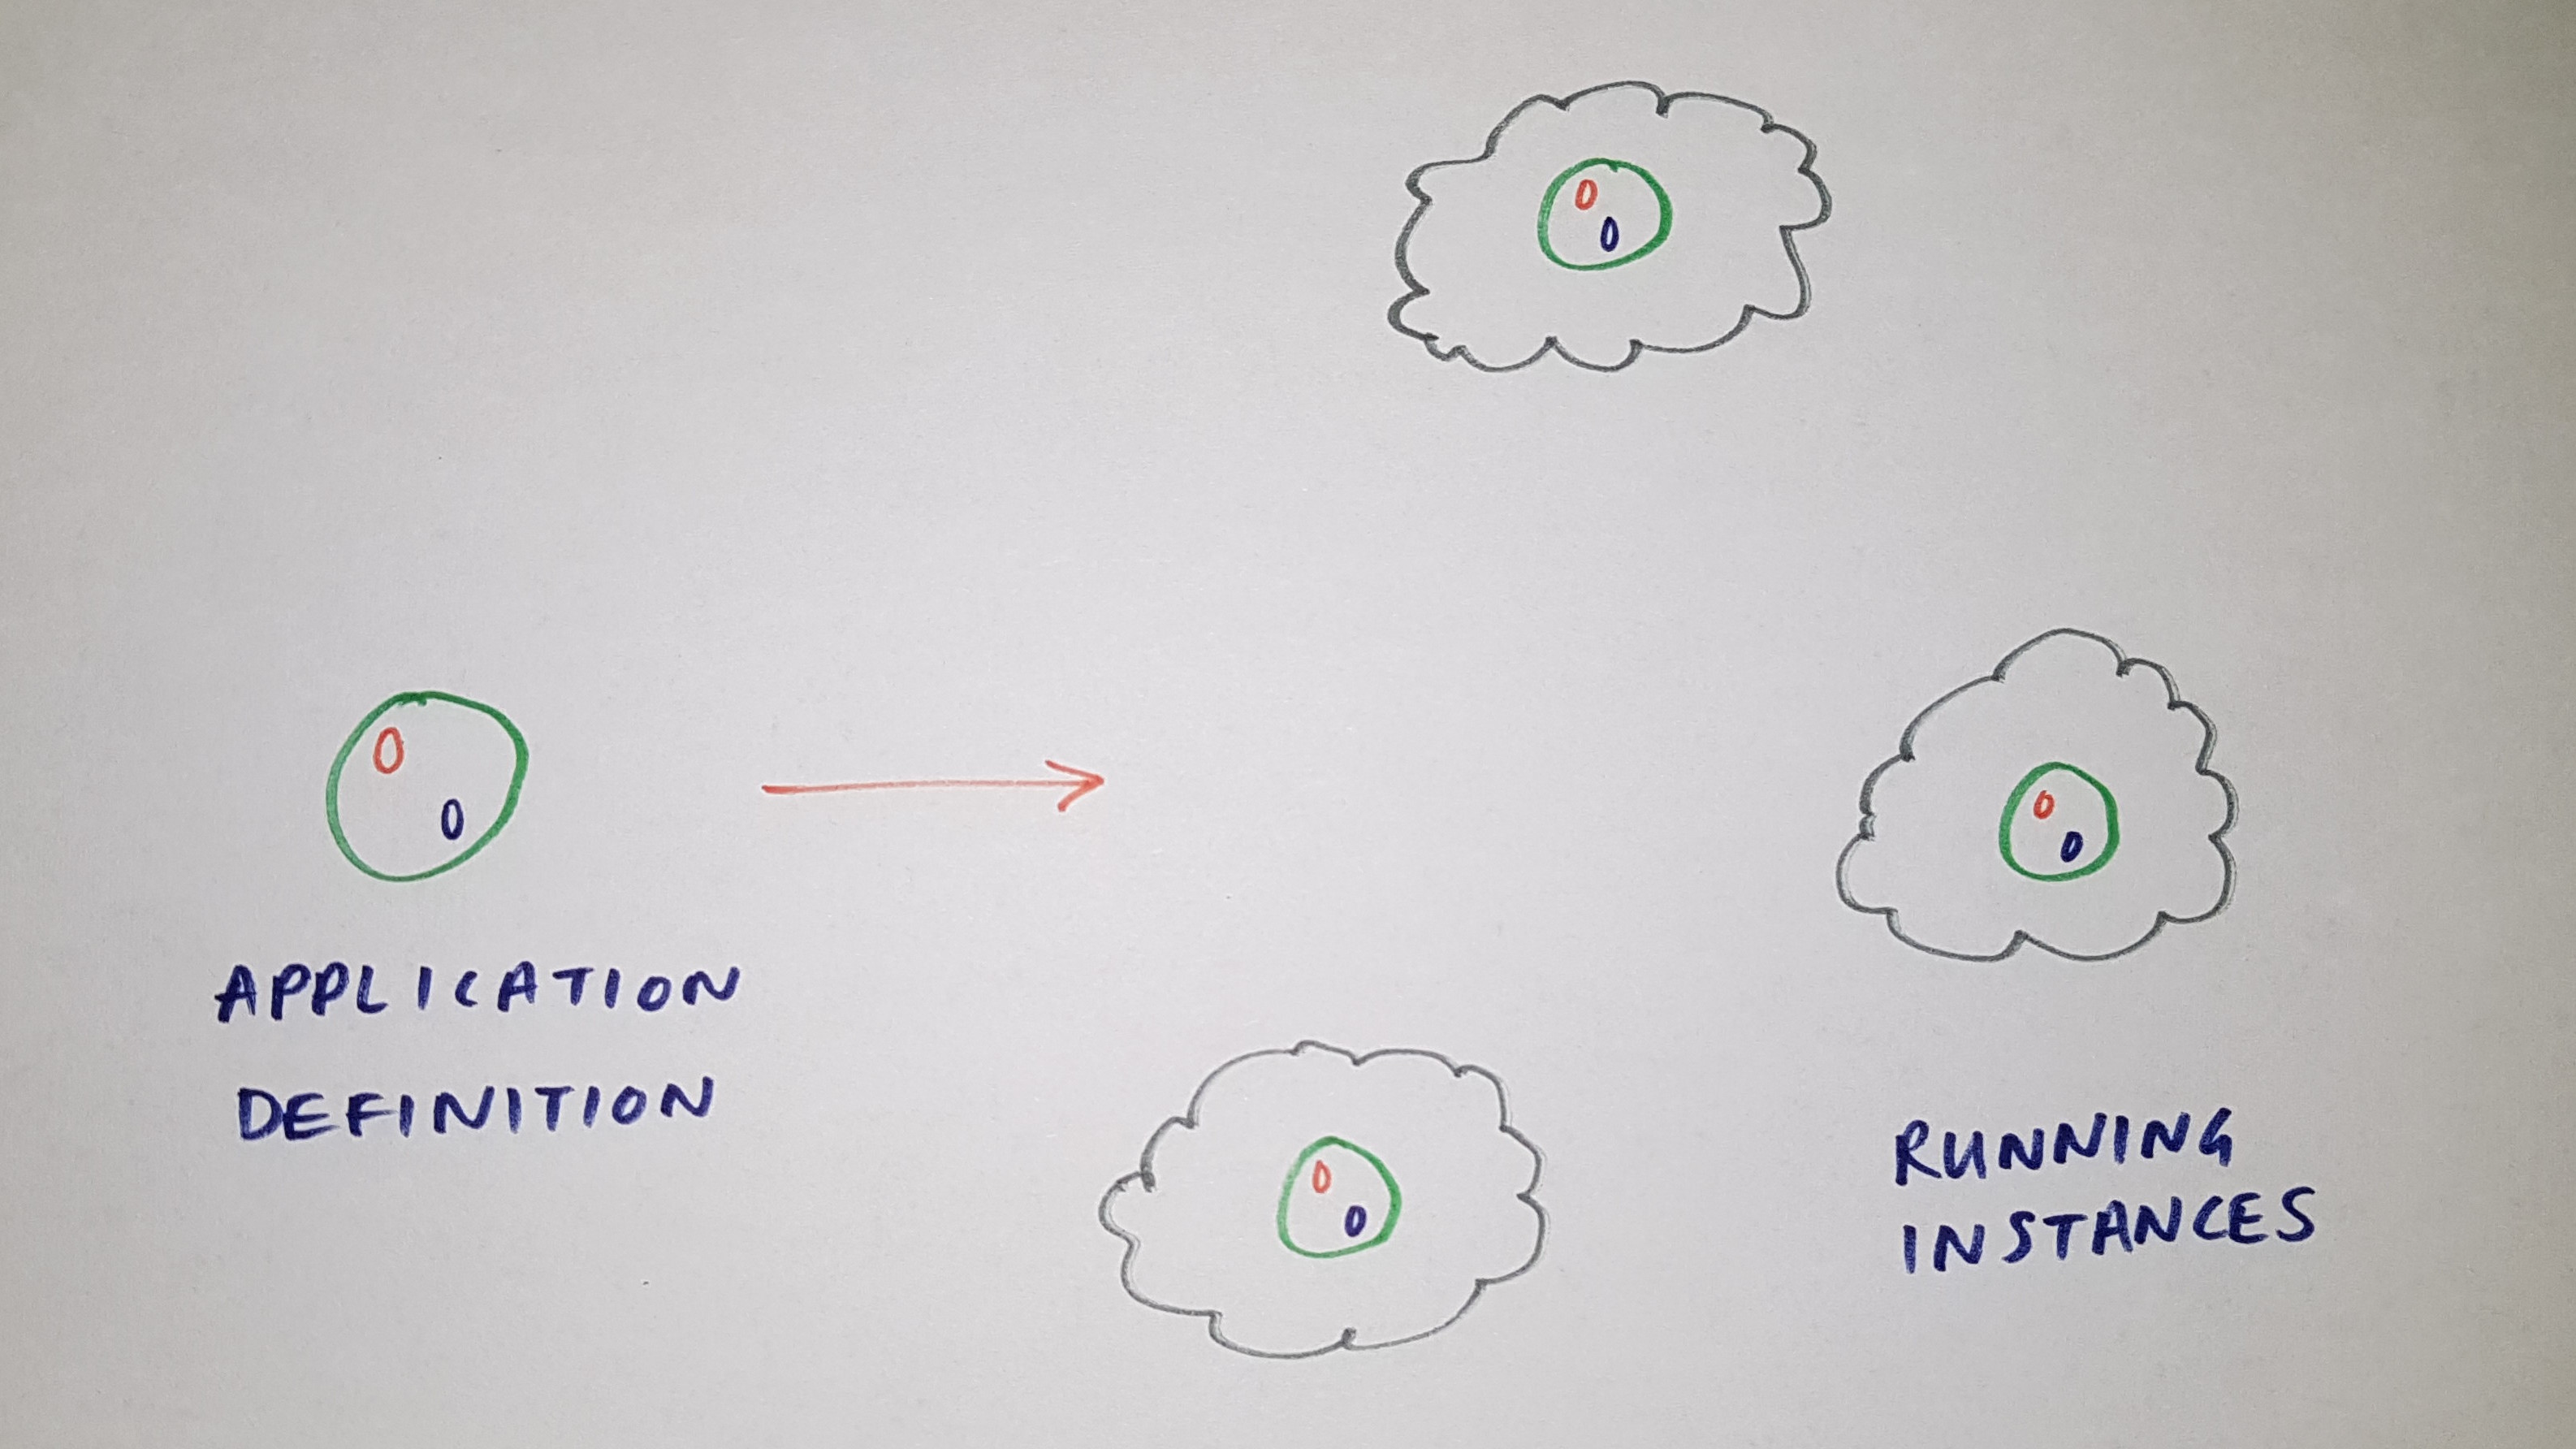 APPLICATION
DEFINITION
RUNNING
INSTANCES